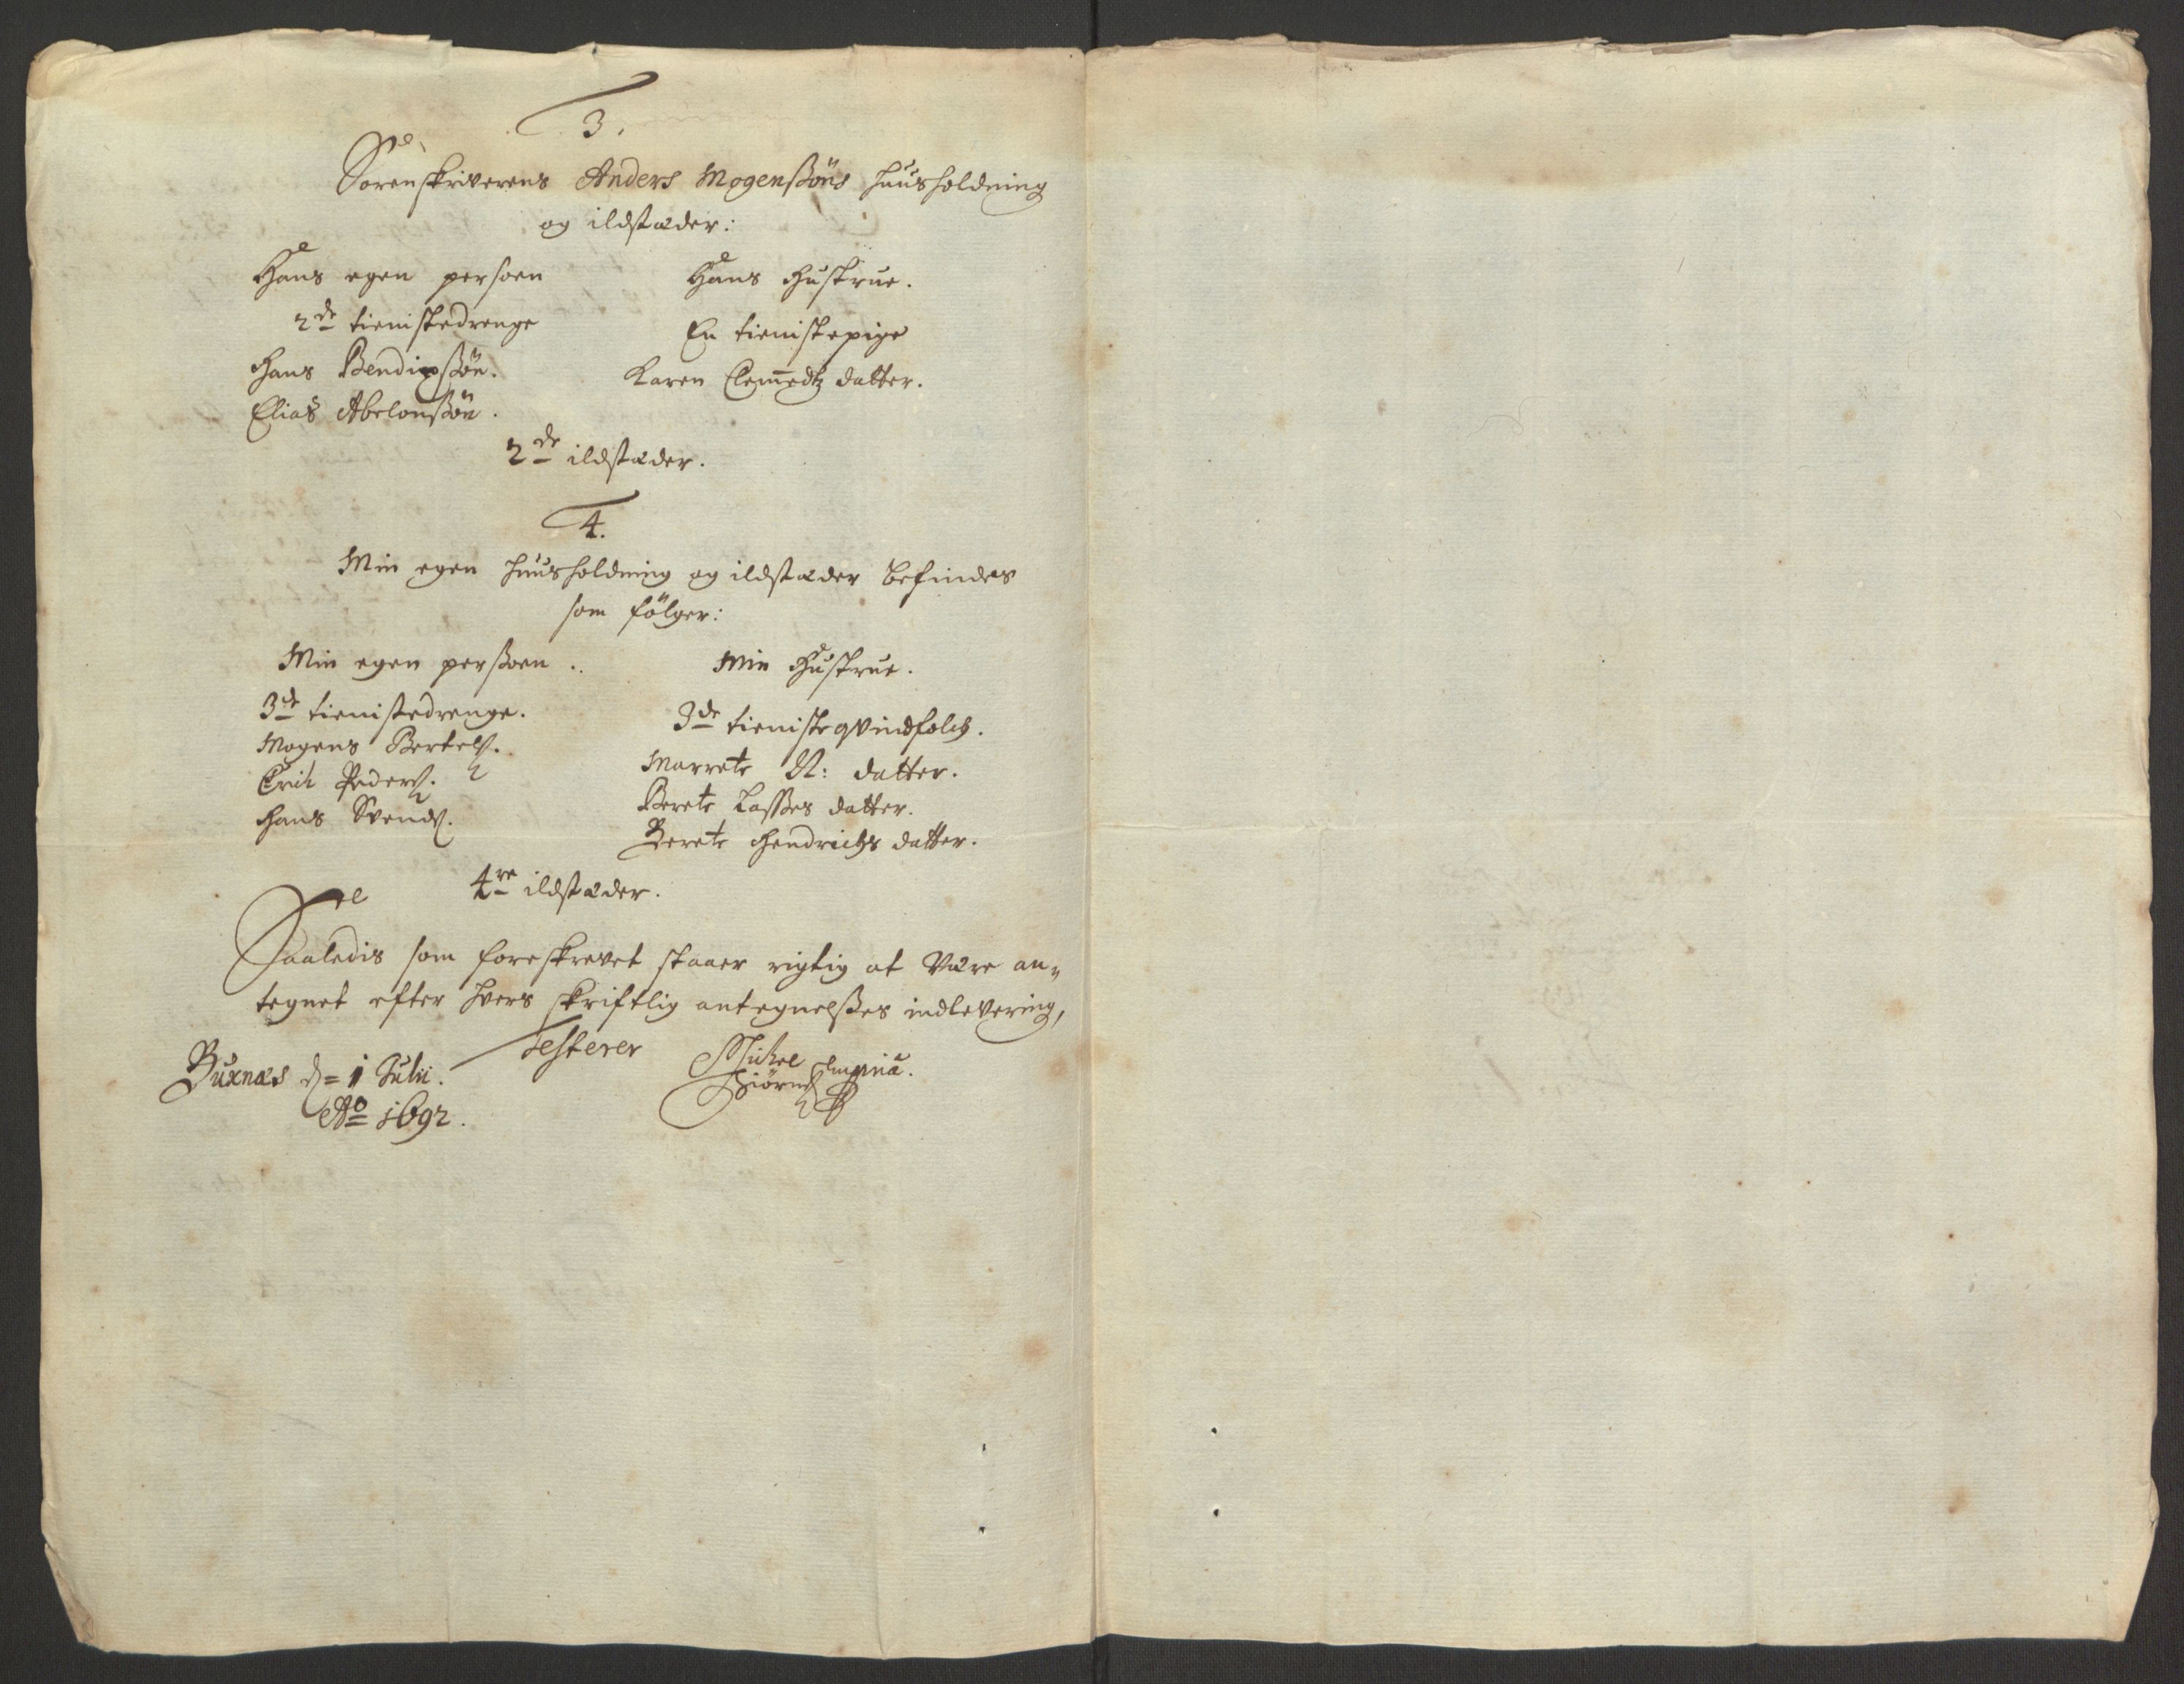 3.
Sorenskriverens Anders Mogensßöns huusholdning
og ildstæder:
Hans egen persoen
2de tienistedrenge
Hans Bendixsßön.
Elias Abelonsßön.
Hans hustrue.
En tienistepige
Karen Clemedtz datter.
2de ildstæder.
4.
Min egen huusholdning og ildstæder befindes
som fölger:
Min egen persßoen.
3de tienistedrenge.
Mogens Bertels.
Erich Peders.
Hans Svends.
Min hustrue.
3de tieniste qvindfolch.
Marrete N: datter.
Berete Lasses datter.
Berete Hendrichs datter.
4re ildstæder.
Saaledis som foreskrevet staaer rigtig at være an„
tegnet efter hvers skriftlig antegnelsßes indlevering,
Testerer
Buxnæs d= 1 Julii.
Ao 1692.
Michel
Biörns Empria.